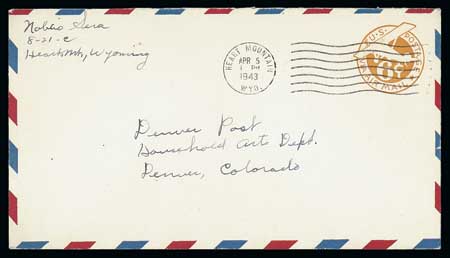 8-21-C
Heart Mt., Wyoming
HEART MOUNTAIN
APR 5
1 PM
1943
WYO.
U.S. POSTAGE
VIA AIR MAIL
6¢
Denver Post
Household Arts Dept.
Denver, Colorado